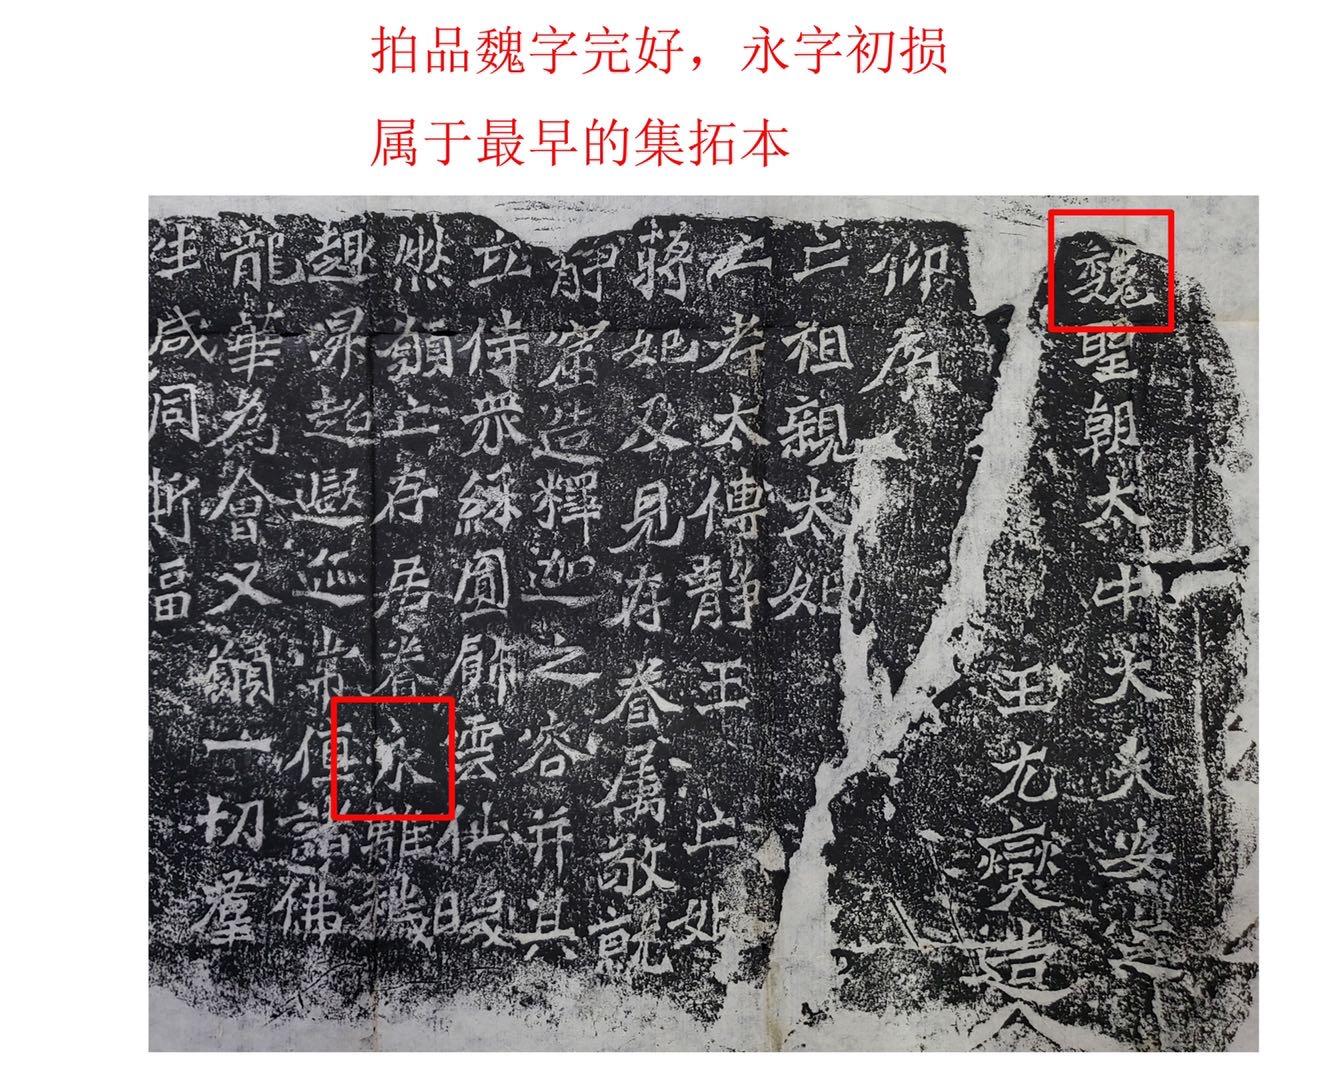 拍品魏字完好，永字初损
属于最早的集拓本
魏聖朝太中大夫安定
王元燮造
仰為
亡祖親太妃
亡考太傅静王亡妣
蔣妃及見存眷屬敬就
静窟造釋迦之容并其
立侍衆綵圖飾雲仙曖
然願亡存居眷永離穢
趣昇超遐迹常值諸佛
龍華為會又願一切羣
生咸同斯福